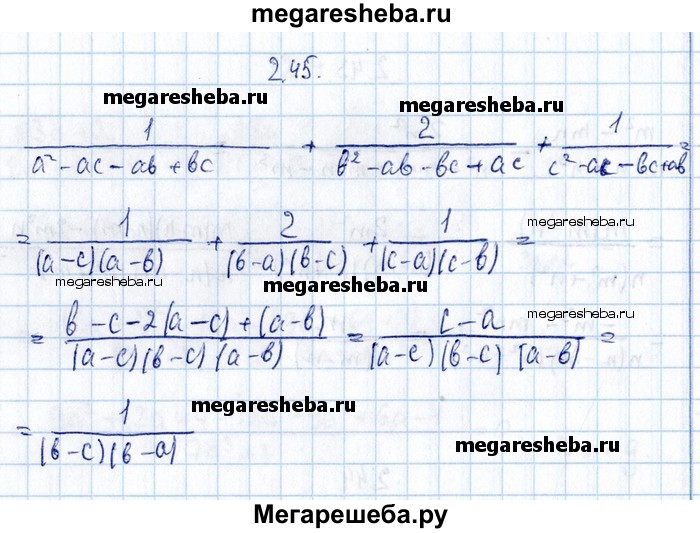 megaresheba.ru
2.45.
megaresheba.ru megaresheba.ru
1/(a² - ac - ab + bc) + 2/(b² - ab - bc + ac) + 1/(c² - ac - bc + ab) =
= 1/((a-c)(a-b)) + 2/((b-a)(b-c)) + 1/((c-a)(c-b)) =
megaresheba.ru
megaresheba.ru megaresheba.ru
= (b - c - 2(a-c) + (a-b))/((a-c)(b-c)(a-b)) = (c-a)/((a-c)(b-c)(a-b)) =
megaresheba.ru
= 1/((b-c)(b-a))
megaresheba.ru
megaresheba.ru
Мегарешеба.ру